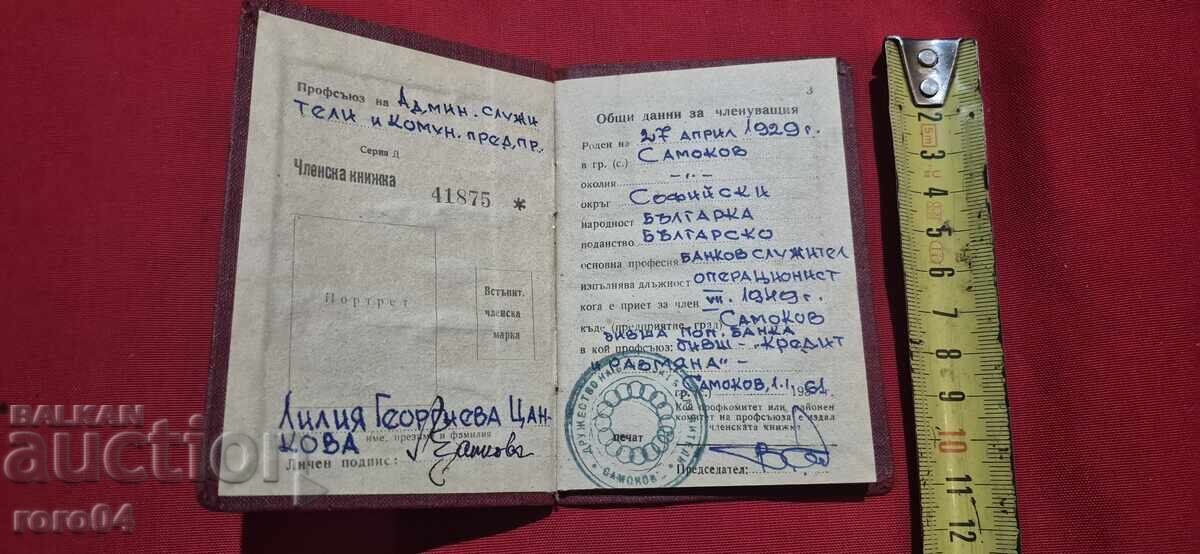 Профсъюз на Админ. служи
тели и комун. предпр.
Серия Д
Членска книжка
41875 *
Портрет
Встъпит.
членска
марка
Лилия Георгиева Цан-
кова
име, презиме и фамилия
Личен подпис: Цанкова
3
Общи данни за членуващия
Роден на 27 април 1929 г.
в гр. (с.) Самоков
околия -"-
окръг Софийски
народност Българка
поданство Българско
основна професия Банков служител
изпълнява длъжност операционист
кога е приет за член VII. 1949 г.
къде (предприятие, град) Самоков
бивша поп. банка
в кой профсъюз: бивш - "Кредит
и размяна" -
гр. (с.) Самоков, 1.I 1961
Кой профкомитет или районен
комитет на профсъюза е издал
членската книжка
печат
Председател:
ДРУЖЕСТВО НА
САМОКОВ
BALKAN
auction
roro04
5m
2
3
4
5
6
7
8
9
10
11
12